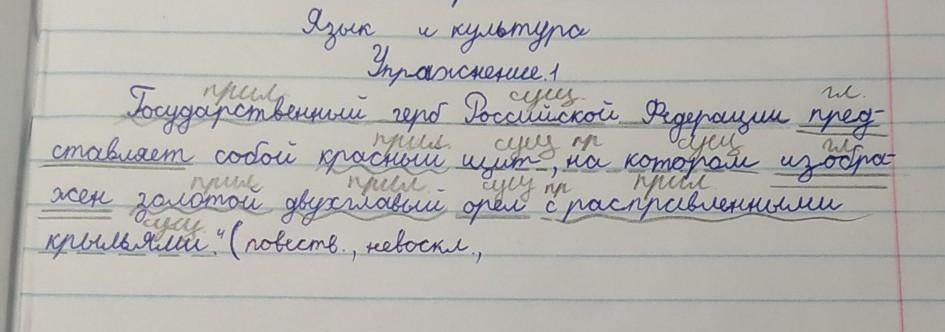 Язык и культура
Упражнение.1
прил. сущ. гл.
Государственный герб Российской Федерации пред-
прил. сущ пр сущ гл.
ставляет собой красный щит, на котором изобра-
прил прил. сущ пр прил.
жен золотой двухглавый орел с расправленными
сущ.
крыльями." (повеств., невоскл.,